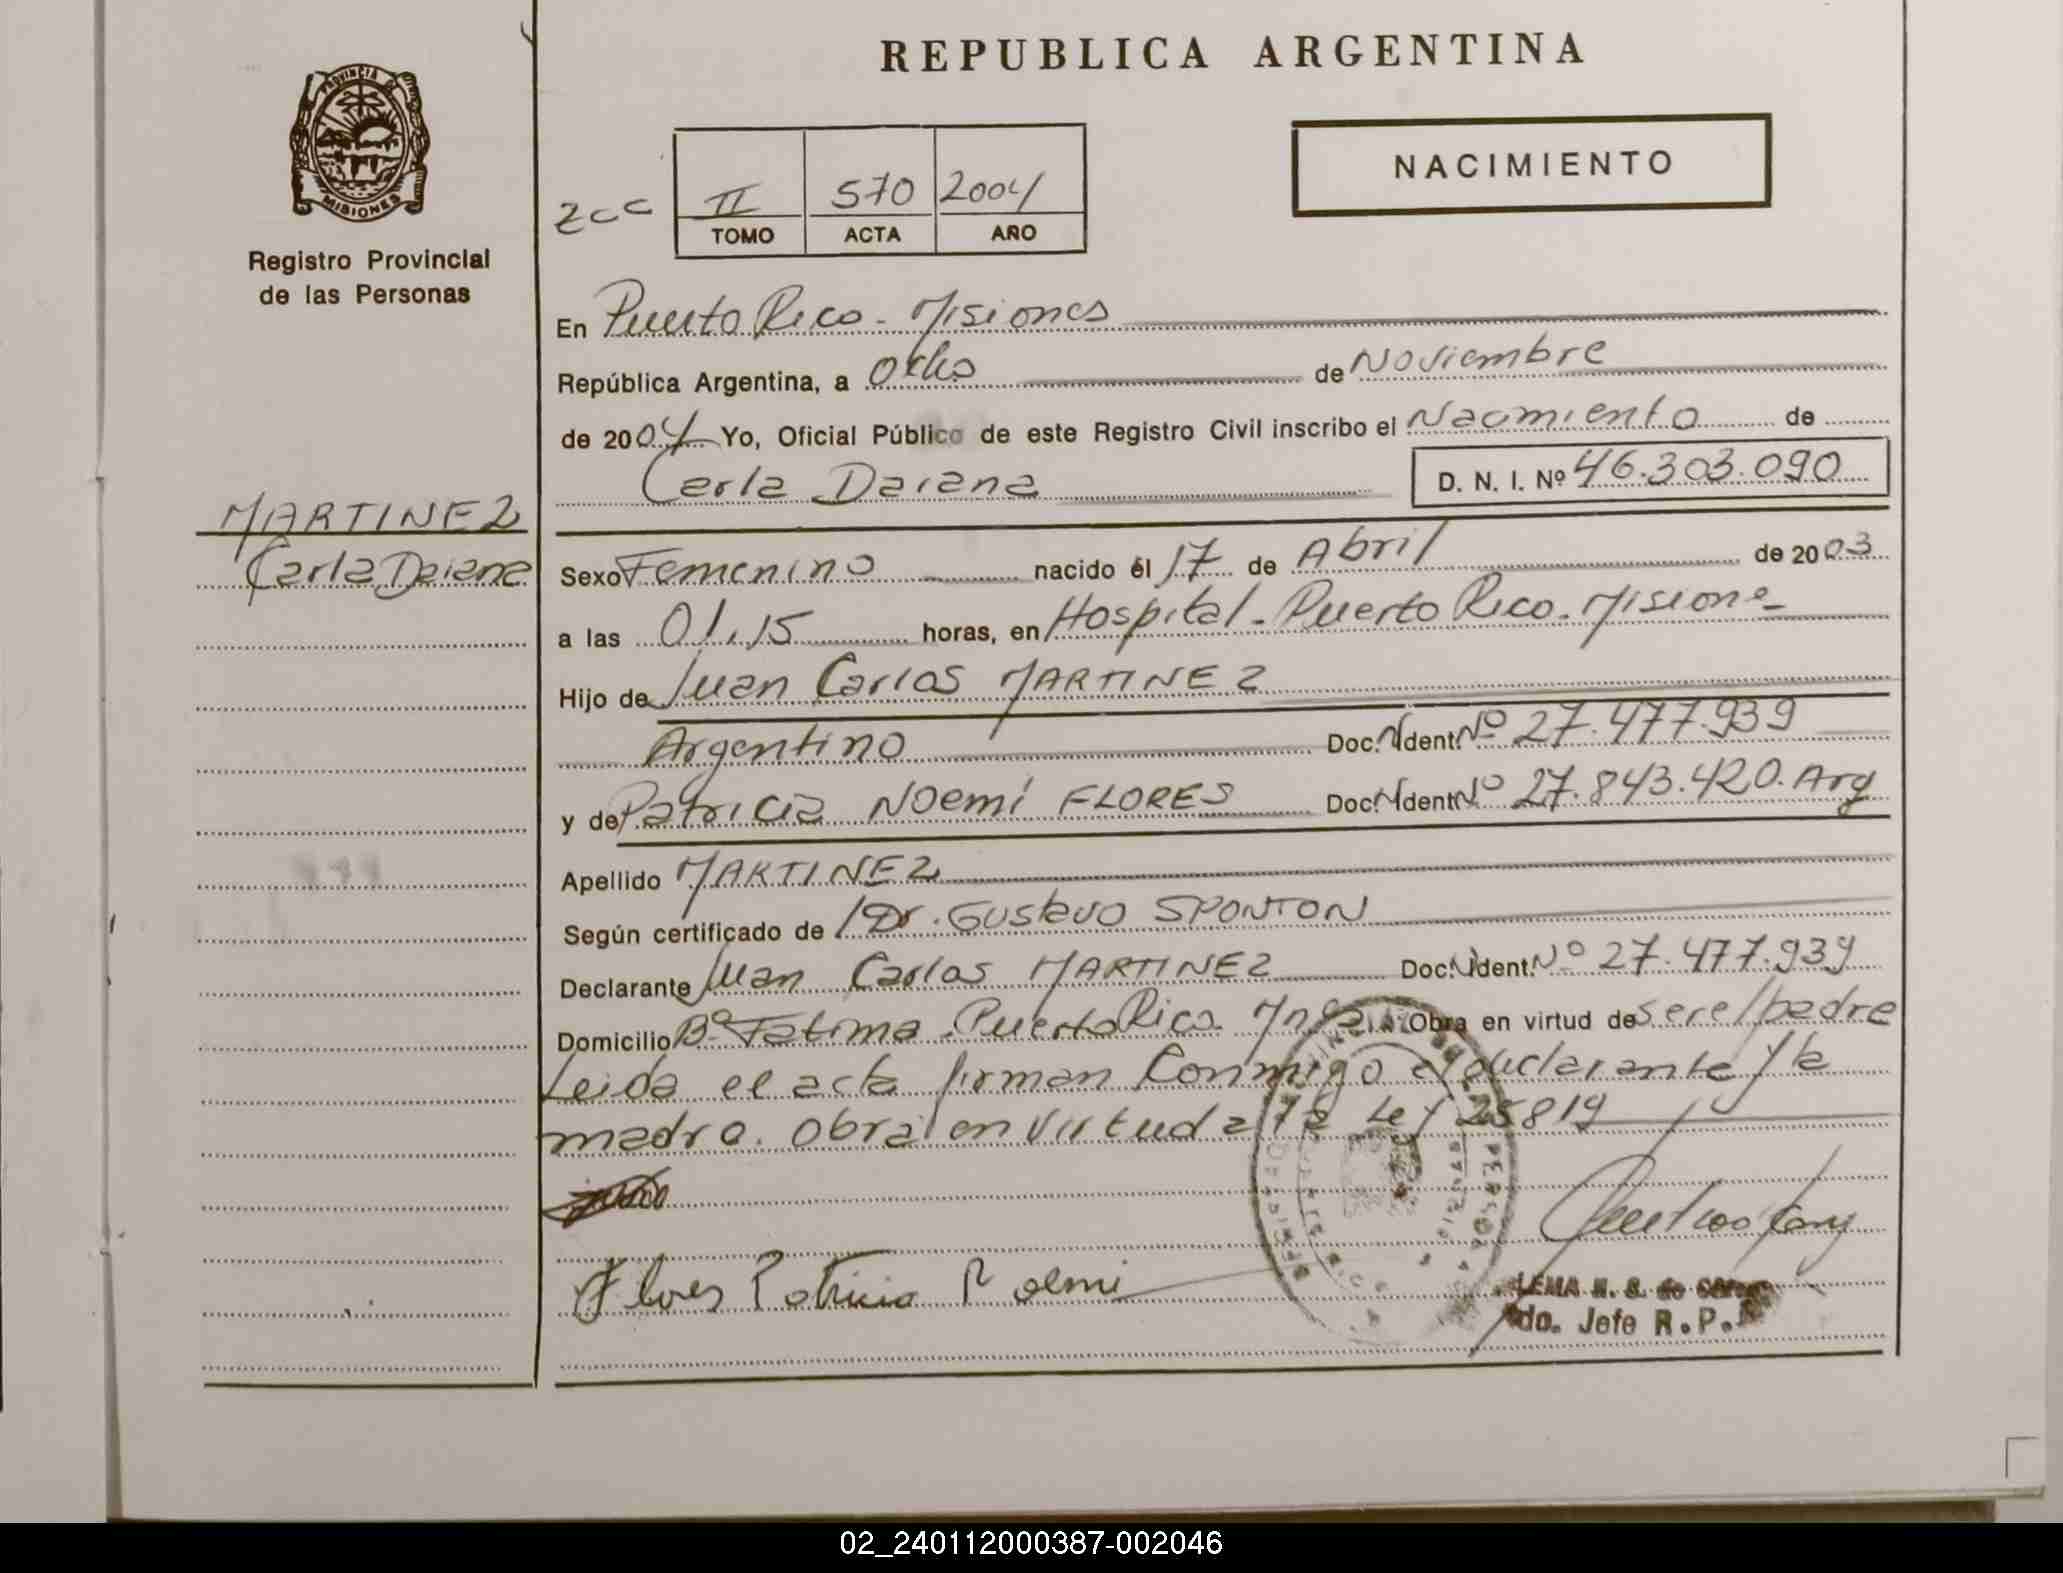 REPUBLICA ARGENTINA
PROVINCIA DE
MISIONES
Registro Provincial
de las Personas
NACIMIENTO
II 570 2004
TOMO ACTA AÑO
En Puerto Rico - Misiones
República Argentina, a Ocho de Noviembre
de 2004 Yo, Oficial Público de este Registro Civil inscribo el Nacimiento de
Carla Daiana D. N. I. Nº 46.303.090
MARTINEZ
Carla Daiana
Sexo Femenino nacido él 17 de Abril de 2003
a las 01,15 horas, en Hospital - Puerto Rico - Misiones
Hijo de Juan Carlos MARTINEZ
Argentino Doc. Ident. Nº 27.477.939
y de Patricia Noemí FLORES Doc. Ident. Nº 27.843.420. Arg
Apellido MARTINEZ
Según certificado de Dr. Gustavo SPONTON
Declarante Juan Carlos MARTINEZ Doc. Ident. Nº 27.477.939
Domicilio Bº Fatima - Puerto Rico Obra en virtud de ser el padre
Leida el acta firman Conmigo el declarante y la
madre. Obra en virtud a la Ley 25819
Flores Patricia Noemi
LEMA
Jefe R.P.
02_240112000387-002046